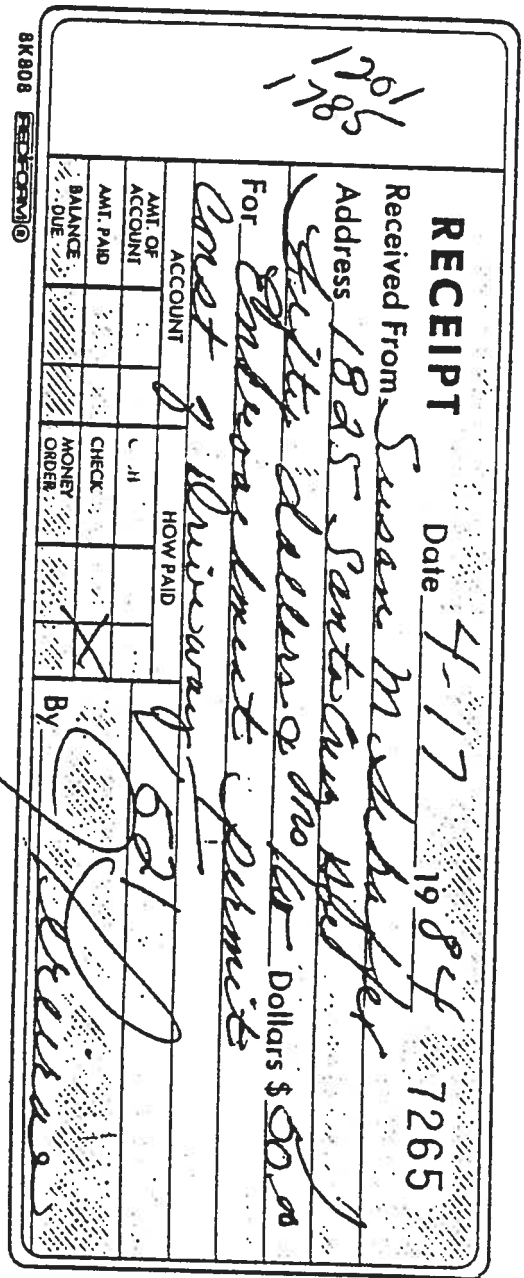 1201
1785
RECEIPT Date 4-17 1984 7265
Received From Susan M
Address 1825 Santa Cruz
Fifty dollars & no/00 Dollars $ 50.00
For Permit
Const g Driveway
ACCOUNT HOW PAID
AMT. OF ACCOUNT
AMT. PAID CHECK X
BALANCE DUE MONEY ORDER
By
8K808 REDIFORM®